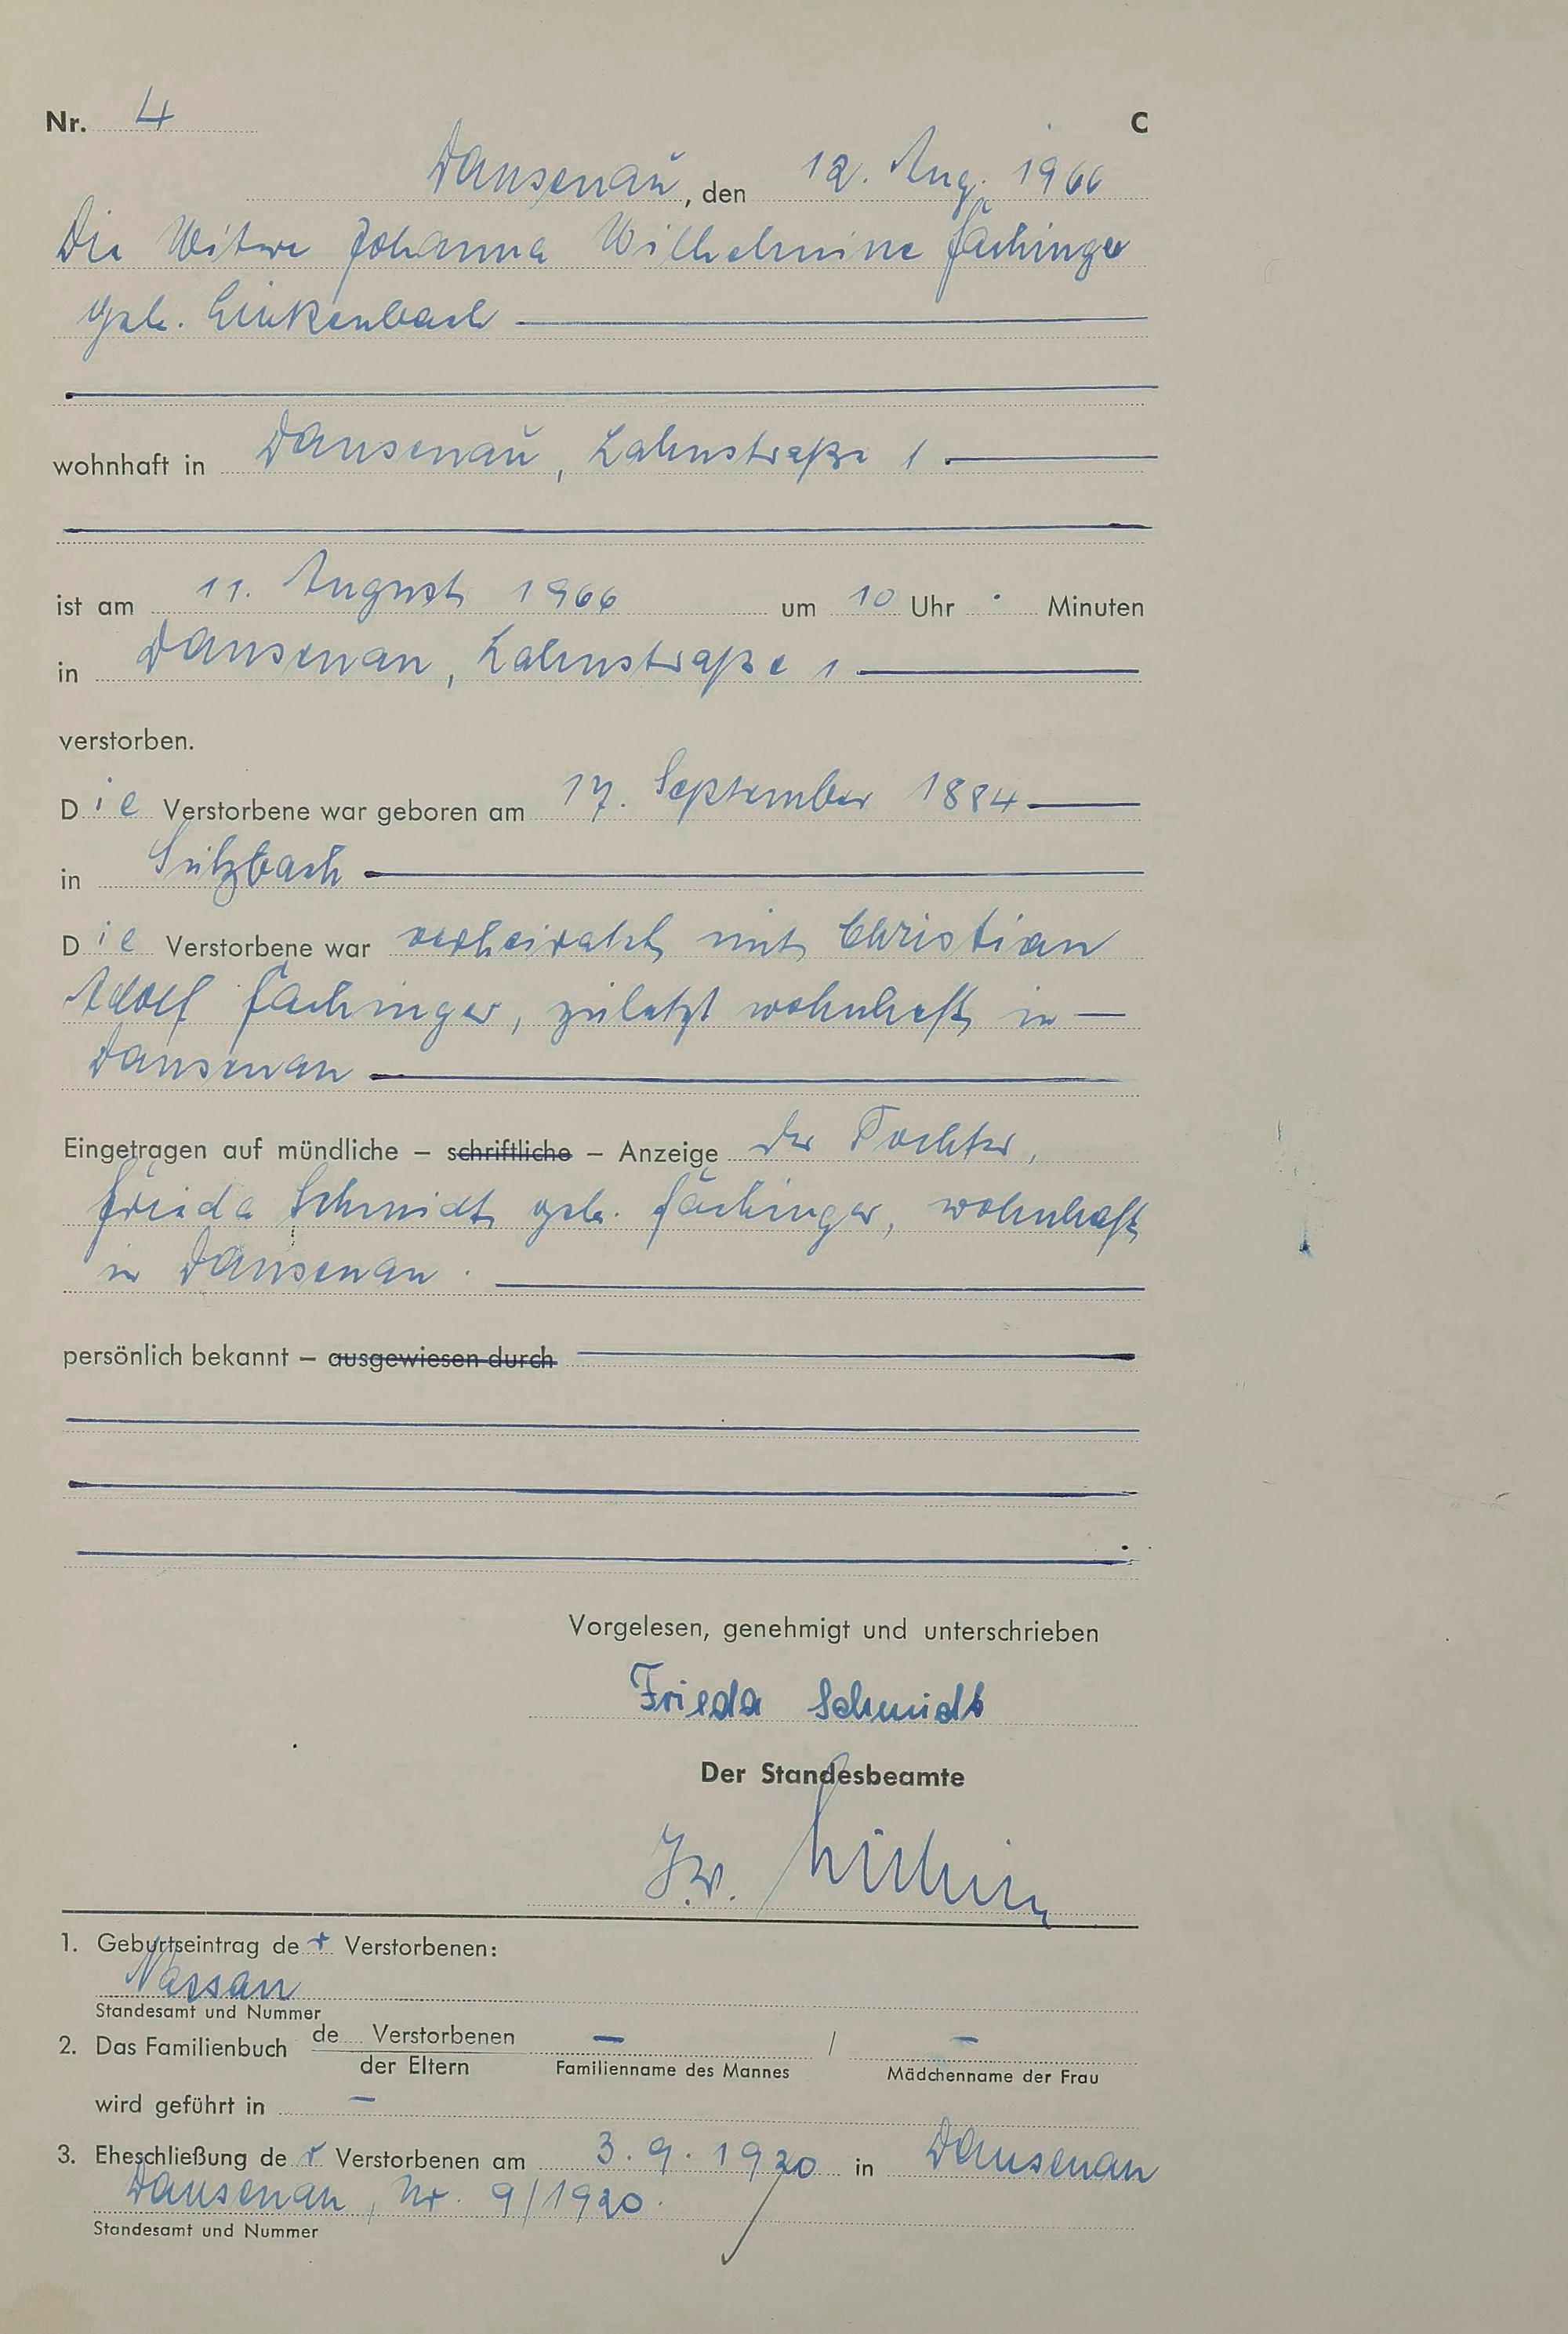 Nr. 4 C
Dausenau, den 12. Aug. 1966
Die Witwe Johanna Wilhelmine Fachinger
geb. Linkenbach
wohnhaft in Dausenau, Lahnstraße 1
ist am 11. August 1966 um 10 Uhr - Minuten
in Dausenau, Lahnstraße 1
verstorben.
Die Verstorbene war geboren am 17. September 1884
in Sulzbach
Die Verstorbene war verheiratet mit Christian
Adolf Fachinger, zuletzt wohnhaft in
Dausenau
Eingetragen auf mündliche – schriftliche – Anzeige der Tochter,
Frieda Schmidt geb. Fachinger, wohnhaft
in Dausenau.
persönlich bekannt – ausgewiesen durch
Vorgelesen, genehmigt und unterschrieben
Frieda Schmidt
Der Standesbeamte
J.V.
1. Geburtseintrag der Verstorbenen:
Nassau
Standesamt und Nummer
2. Das Familienbuch de Verstorbenen – / –
der Eltern Familienname des Mannes Mädchenname der Frau
wird geführt in –
3. Eheschließung der Verstorbenen am 3.9.1920 in Dausenau
Dausenau, Nr. 9/1920.
Standesamt und Nummer